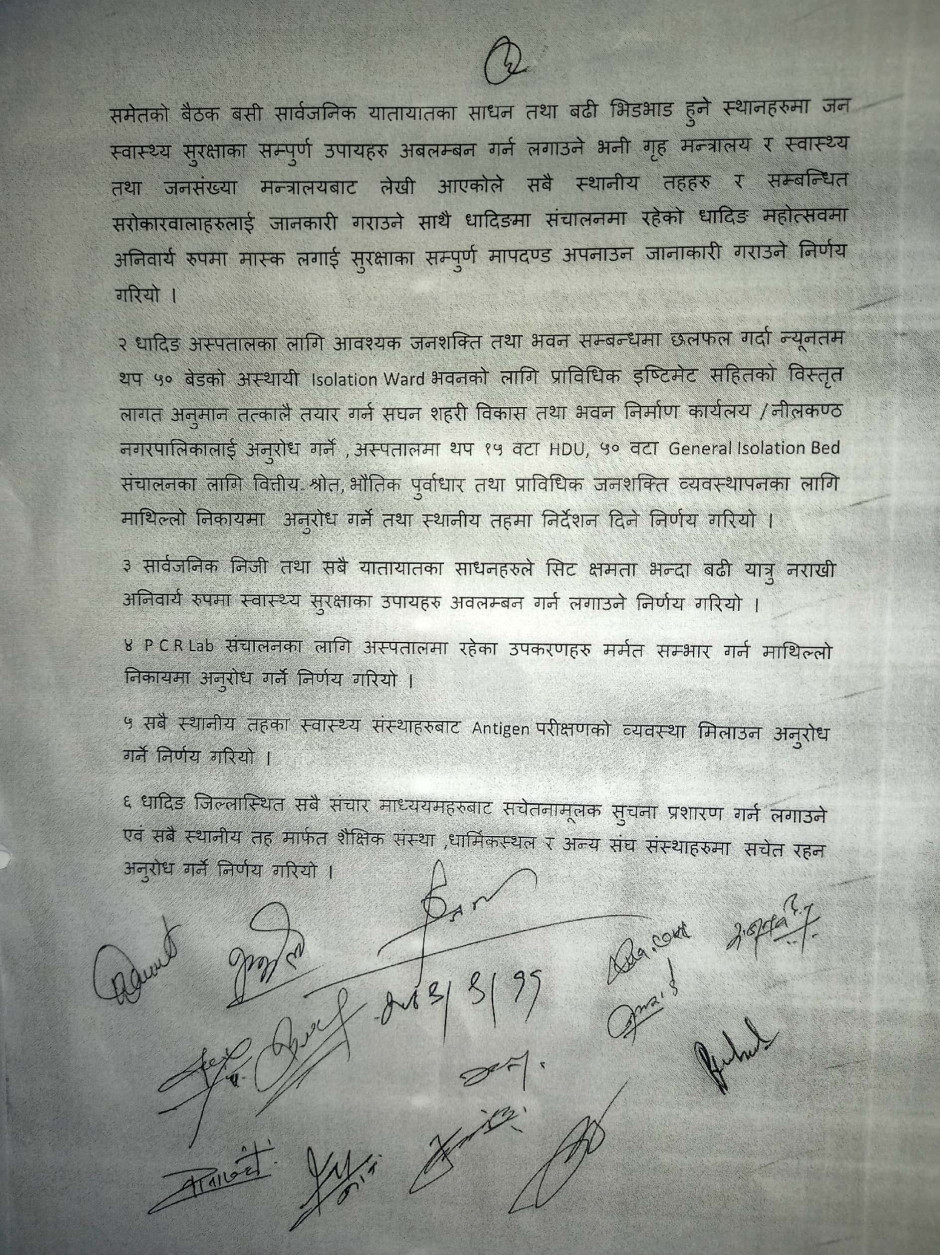 समेतको बैठक बसी सार्वजनिक यातायातका साधन तथा बढी भिडभाड हुने स्थानहरुमा जन
स्वास्थ्य सुरक्षाका सम्पुर्ण उपायहरु अबलम्बन गर्न लगाउने भनी गृह मन्त्रालय र स्वास्थ्य
तथा जनसंख्या मन्त्रालयबाट लेखी आएकोले सबै स्थानीय तहहरु र सम्बन्धित
सरोकारवालाहरुलाई जानकारी गराउने साथै धादिङमा संचालनमा रहेको धादिङ महोत्सवमा
अनिवार्य रुपमा मास्क लगाई सुरक्षाका सम्पुर्ण मापदण्ड अपनाउन जानाकारी गराउने निर्णय
गरियो ।
२ धादिङ अस्पतालका लागि आवश्यक जनशक्ति तथा भवन सम्बन्धमा छलफल गर्दा न्यूनतम
थप ५० बेडको अस्थायी Isolation Ward भवनको लागि प्राविधिक इष्टिमेट सहितको विस्तृत
लागत अनुमान तत्कालै तयार गर्न सघन शहरी विकास तथा भवन निर्माण कार्यलय /नीलकण्ठ
नगरपालिकालाई अनुरोध गर्ने ,अस्पतालमा थप १५ वटा HDU, ५० वटा General Isolation Bed
संचालनका लागि वित्तीय श्रोत, भौतिक पुर्वाधार तथा प्राविधिक जनशक्ति व्यवस्थापनका लागि
माथिल्लो निकायमा अनुरोध गर्ने तथा स्थानीय तहमा निर्देशन दिने निर्णय गरियो ।
३ सार्वजनिक निजी तथा सबै यातायातका साधनहरुले सिट क्षमता भन्दा बढी यात्रु नराखी
अनिवार्य रुपमा स्वास्थ्य सुरक्षाका उपायहरु अवलम्बन गर्न लगाउने निर्णय गरियो ।
४ P C R Lab संचालनका लागि अस्पतालमा रहेका उपकरणहरु मर्मत सम्भार गर्न माथिल्लो
निकायमा अनुरोध गर्ने निर्णय गरियो ।
५ सबै स्थानीय तहका स्वास्थ्य संस्थाहरुबाट Antigen परीक्षणको व्यवस्था मिलाउन अनुरोध
गर्ने निर्णय गरियो ।
६ धादिङ जिल्लास्थित सबै संचार माध्ययमहरुबाट सचेतनामूलक सुचना प्रशारण गर्न लगाउने
एवं सबै स्थानीय तह मार्फत शैक्षिक संस्था ,धार्मिकस्थल र अन्य संघ संस्थाहरुमा सचेत रहन
अनुरोध गर्ने निर्णय गरियो ।